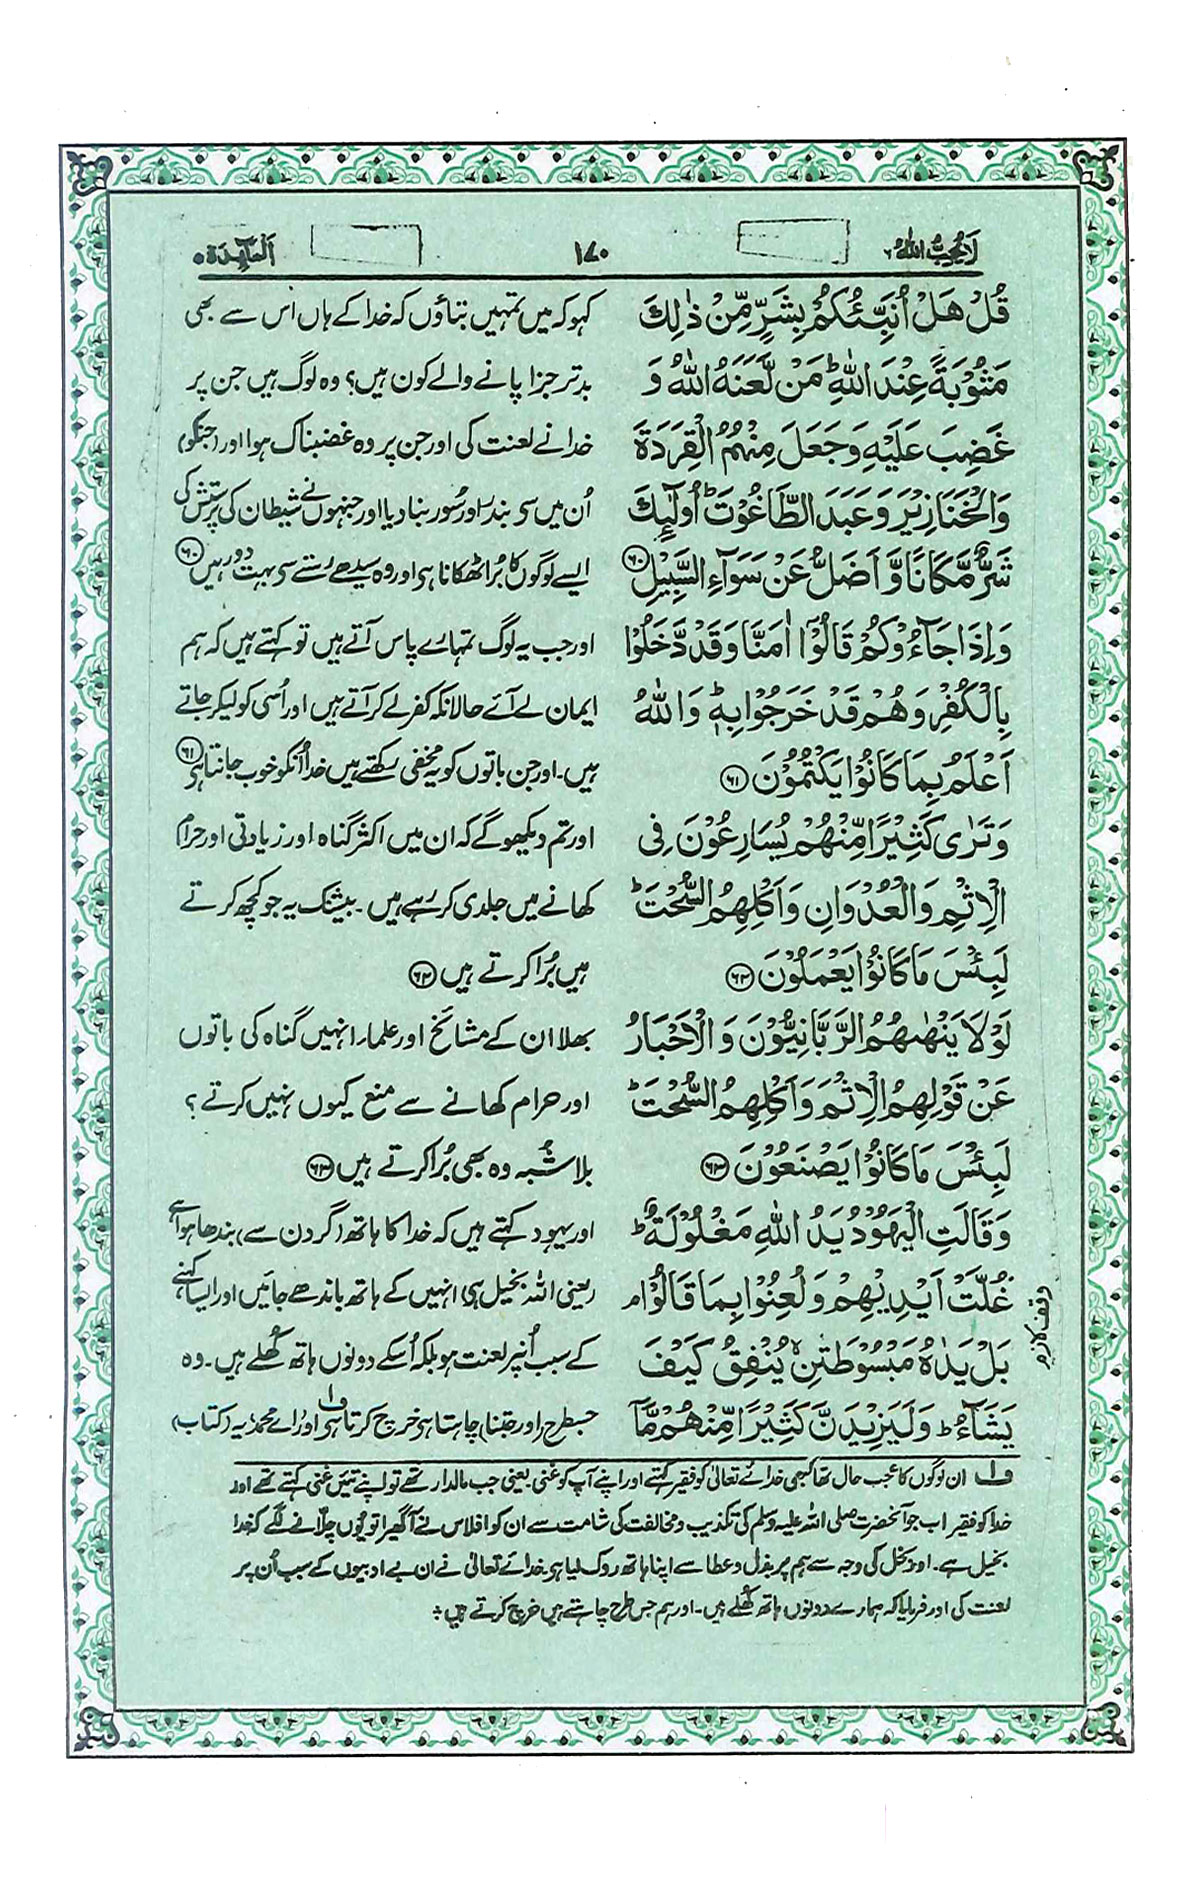 لا یحب اللہ ۶
۱۷۰
اَلْمَآئِدَة ۵
قُلْ هَلْ اُنَبِّئُكُمْ بِشَرٍّ مِّنْ ذٰلِكَ
مَثُوْبَةً عِنْدَ اللّٰهِؕ مَنْ لَّعَنَهُ اللّٰهُ وَ
غَضِبَ عَلَيْهِ وَجَعَلَ مِنْهُمُ الْقِرَدَةَ
وَالْخَنَازِيْرَ وَعَبَدَ الطَّاغُوْتَؕ اُولٰٓئِكَ
شَرٌّ مَّكَانًا وَّاَضَلُّ عَنْ سَوَآءِ السَّبِيْلِ ۶۰
وَاِذَا جَآءُوْكُمْ قَالُوْٓا اٰمَنَّا وَقَدْ دَّخَلُوْا
بِالْكُفْرِ وَهُمْ قَدْ خَرَجُوْا بِهٖؕ وَاللّٰهُ
اَعْلَمُ بِمَا كَانُوْا يَكْتُمُوْنَ ۶۱
وَتَرٰى كَثِيْرًا مِّنْهُمْ يُسَارِعُوْنَ فِى
الْاِثْمِ وَالْعُدْوَانِ وَاَكْلِهِمُ السُّحْتَؕ
لَبِئْسَ مَا كَانُوْا يَعْمَلُوْنَ ۶۲
لَوْلَا يَنْهٰىهُمُ الرَّبَّانِيُّوْنَ وَالْاَحْبَارُ
عَنْ قَوْلِهِمُ الْاِثْمَ وَاَكْلِهِمُ السُّحْتَؕ
لَبِئْسَ مَا كَانُوْا يَصْنَعُوْنَ ۶۳
وَقَالَتِ الْيَهُوْدُ يَدُ اللّٰهِ مَغْلُوْلَةٌؕ
غُلَّتْ اَيْدِيْهِمْ وَلُعِنُوْا بِمَا قَالُوْاۘ
بَلْ يَدٰهُ مَبْسُوْطَتٰنِۙ يُنْفِقُ كَيْفَ
يَشَآءُؕ وَلَيَزِيْدَنَّ كَثِيْرًا مِّنْهُمْ مَّآ
وقف لازم
کہو کہ میں تمہیں بتاؤں کہ خدا کے ہاں اس سے بھی
بدتر جزا پانے والے کون ہیں؟ وہ لوگ ہیں جن پر
خدا نے لعنت کی اور جن پر وہ غضبناک ہوا اور (جنکو)
اُن میں سی بندر اور سُور بنا دیا اور جنہوں نے شیطان کی پرستش کی
ایسے لوگوں کا بُرا ٹھکانا ہی اور وہ سیدھے رستے سی بہت دور ہیں ۶۰
اور جب یہ لوگ تمہارے پاس آتے ہیں تو کہتے ہیں کہ ہم
ایمان لے آئے حالانکہ کفر لے کر آتے ہیں اور اُسی کو لیکر جاتے
ہیں۔ اور جن باتوں کو یہ مخفی رکھتے ہیں خدا اُنکو خوب جانتا ہی ۶۱
اور تم دیکھو گے کہ ان میں اکثر گناہ اور زیادتی اور حرام
کھانے میں جلدی کر رہے ہیں۔ بیشک یہ جو کچھ کرتے
ہیں بُرا کرتے ہیں ۶۲
بھلا ان کے مشائخ اور علماء انہیں گناہ کی باتوں
اور حرام کھانے سے منع کیوں نہیں کرتے؟
بلاشُبہ وہ بھی بُرا کرتے ہیں ۶۳
اور یہود کہتے ہیں کہ خدا کا ہاتھ (گردن سے) بندھا ہوا ہے
(یعنی اللہ بخیل ہی) انہیں کے ہاتھ باندھے جائیں اور ایسا کہنے
کے سبب اُنپر لعنت ہو بلکہ اُسکے دونوں ہاتھ کُھلے ہیں۔ وہ
جسطرح (اور جتنا) چاہتا ہی خرچ کرتا ہی ف۱ اور اے محمد یہ (کتاب)
ف۱ ان لوگوں کا عجب حال تھا کبھی خدائے تعالیٰ کو فقیر کہتے اور اپنے آپ کو غنی یعنی جب مالدار تھے تو اپنے تئیں غنی کہتے تھے اور
خدا کو فقیر۔ اب جو آنحضرت صلی اللہ علیہ وسلم کی تکذیب و مخالفت کی شامت سے ان کو افلاس نے آ گھیرا تو یُوں چلّانے لگے کہ خدا
بخیل ہے۔ اور بخل کی وجہ سے ہم پر بذل و عطا سے اپنا ہاتھ روک لیا ہی خدائے تعالیٰ نے ان بے ادبیوں کے سبب اُن پر
لعنت کی اور فرمایا کہ ہمارے دونوں ہاتھ کُھلے ہیں۔ اور ہم جس طرح چاہتے ہیں خرچ کرتے ہیں